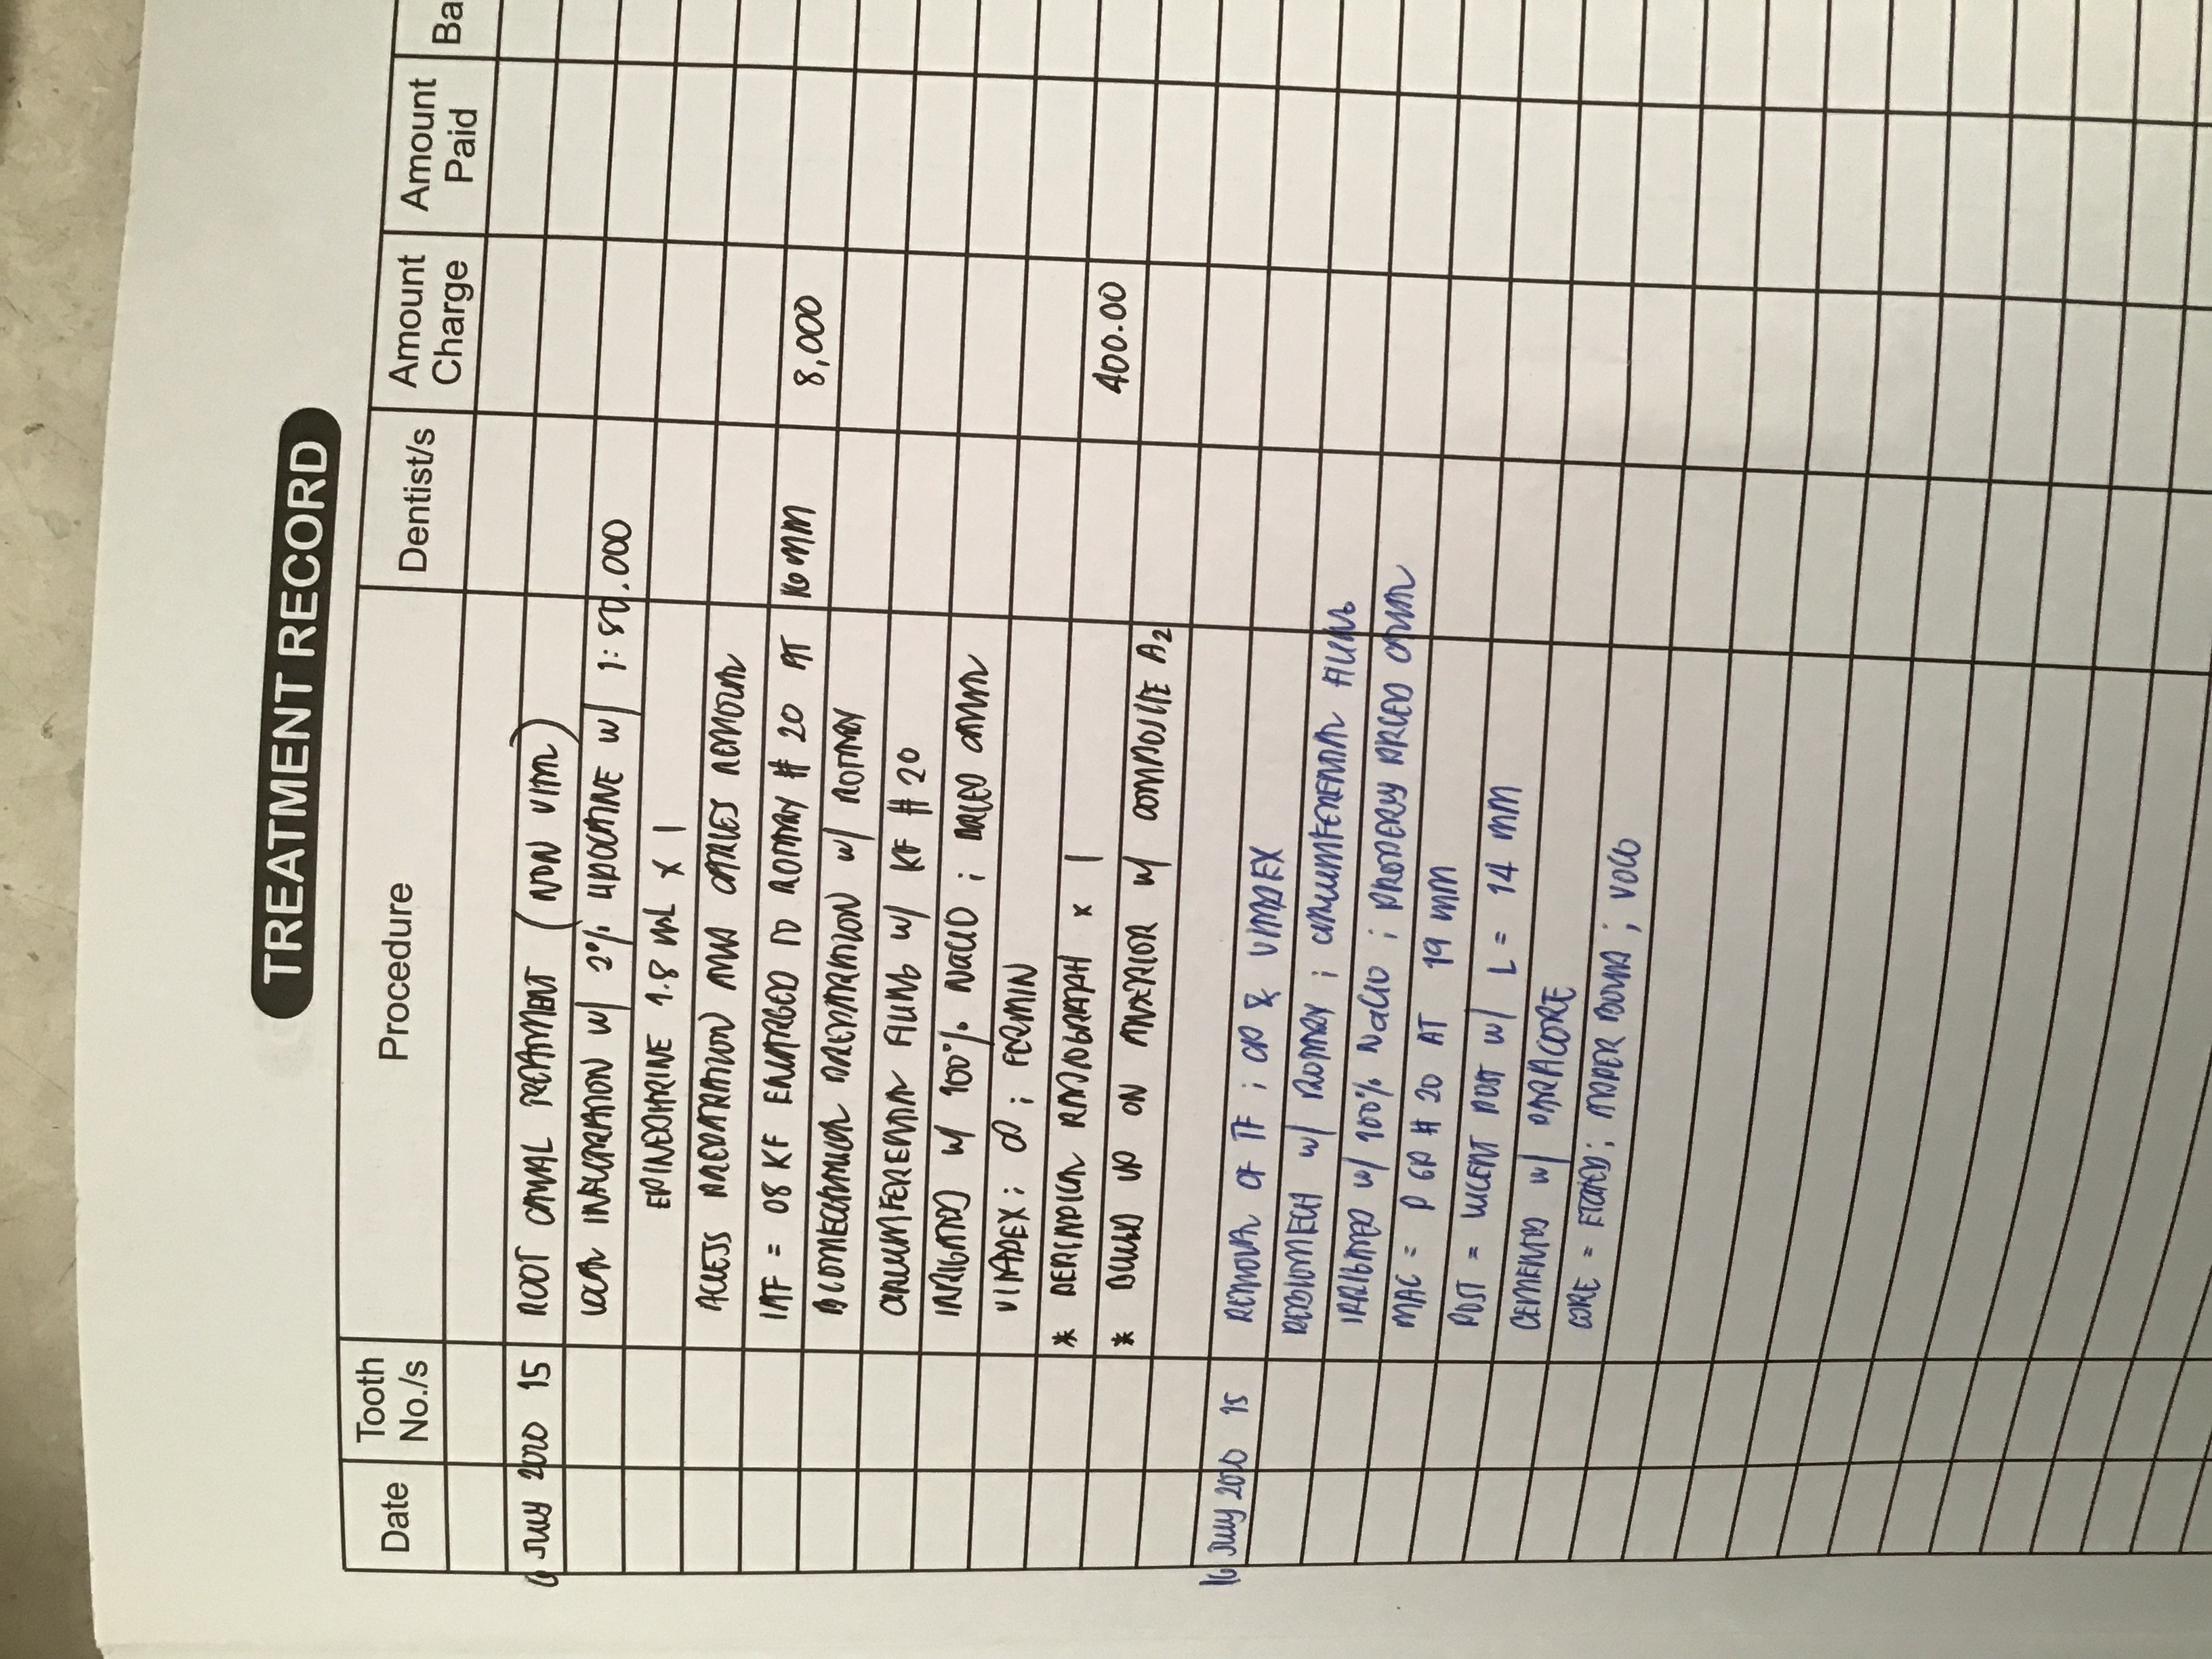 TREATMENT RECORD
Date Tooth No./s Procedure Dentist/s Amount Charge Amount Paid Ba
6 JULY 2020 15 ROOT CANAL TREATMENT (NON VITAL)
LOCAL INFILTRATION W/ 2% LIDOCAINE W/ 1:80,000
EPINEPHRINE 1.8 mL X 1
ACCESS PREPARATION AND CARIES REMOVAL
IAF = 08 KF ENLARGED TO ROTARY # 20 AT 16 MM 8,000
BIOMECHANICAL PREPARATION W/ ROTARY
CIRCUMFERENTIAL FILING W/ KF # 20
IRRIGATED W/ 100% NaClO ; DRIED CANAL
VITAPEX ; CP ; FERMIN
* PERIAPICAL RADIOGRAPH X 1
* BUILD UP ON ANTERIOR W/ COMPOSITE A2 400.00
16 JULY 2020 15 REMOVAL OF TF ; CP & VITAPEX
W/ ROTARY ; CIRCUMFERENTIAL FILING
IRRIGATED W/ 100% NaClO ; PROPERLY DRIED CANAL
MAC = P GP # 20 AT 19 MM
POST = LUCENT POST W/ L = 14 MM
CEMENTED W/ PARACORE
CORE = ETCHED ; BOND ; VOCO